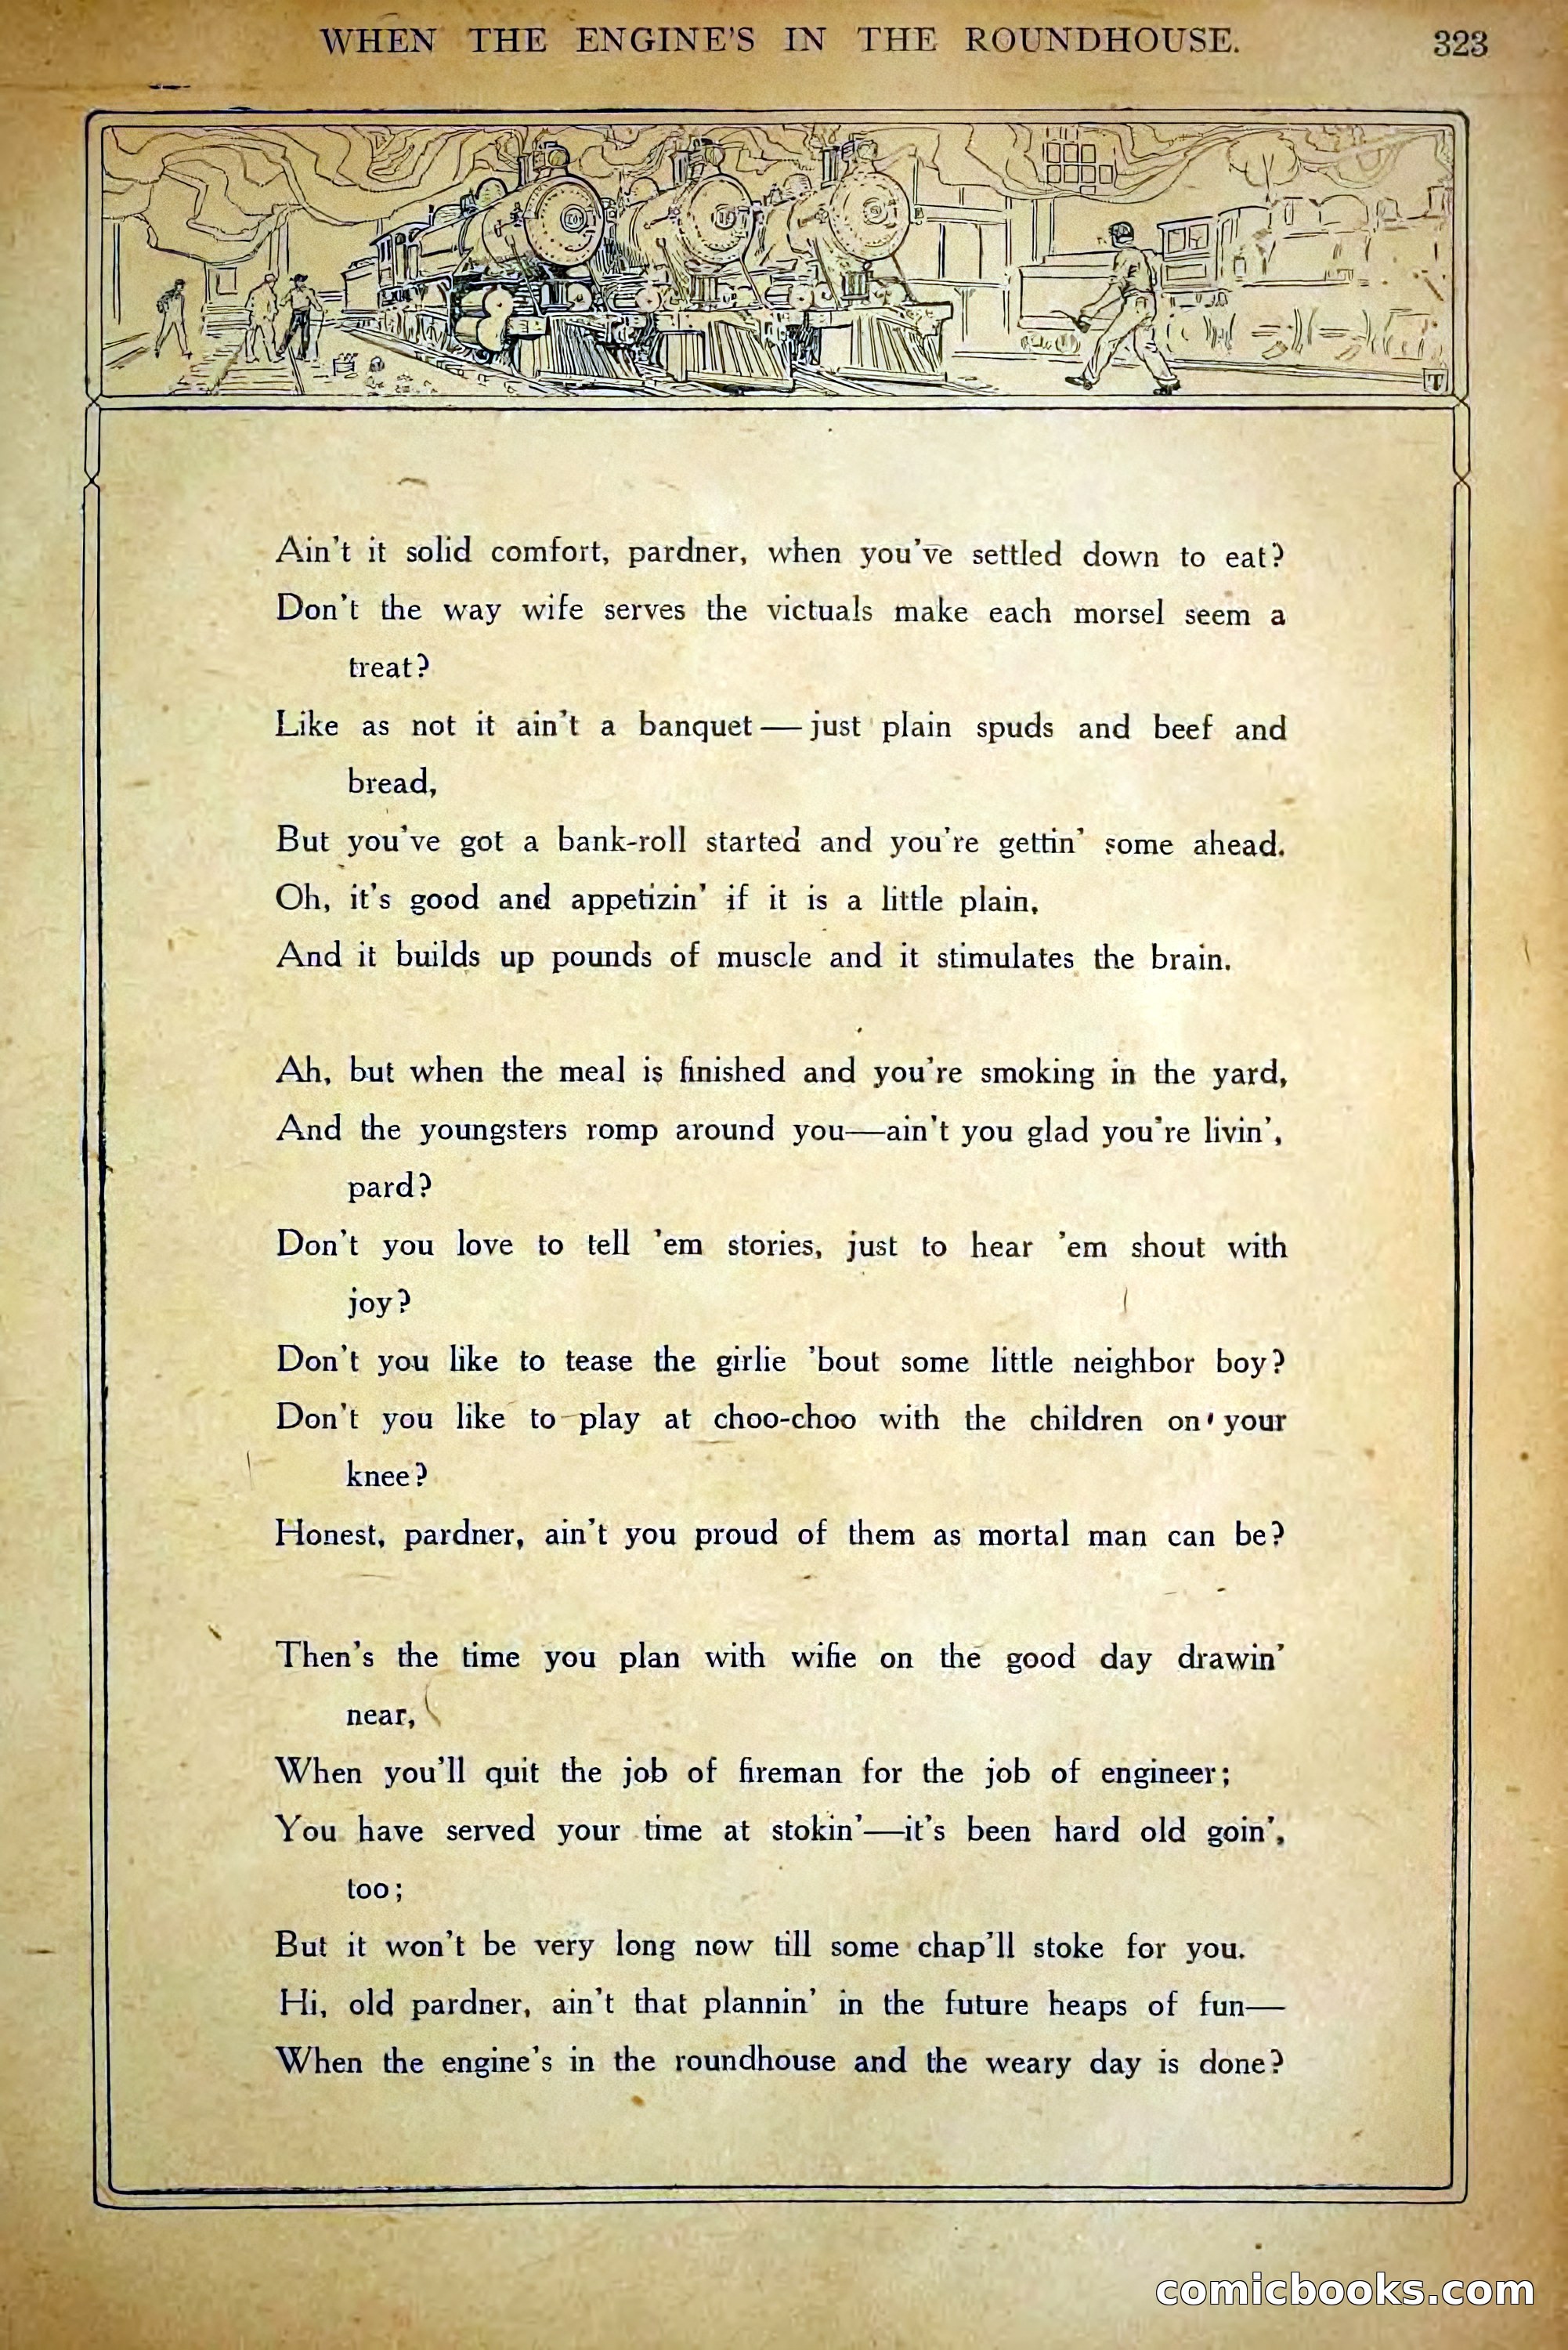 WHEN THE ENGINE'S IN THE ROUNDHOUSE. 323
Ain't it solid comfort, pardner, when you've settled down to eat?
Don't the way wife serves the victuals make each morsel seem a
treat?
Like as not it ain't a banquet — just plain spuds and beef and
bread,
But you've got a bank-roll started and you're gettin' some ahead.
Oh, it's good and appetizin' if it is a little plain,
And it builds up pounds of muscle and it stimulates the brain.
Ah, but when the meal is finished and you're smoking in the yard,
And the youngsters romp around you—ain't you glad you're livin',
pard?
Don't you love to tell 'em stories, just to hear 'em shout with
joy?
Don't you like to tease the girlie 'bout some little neighbor boy?
Don't you like to play at choo-choo with the children on your
knee?
Honest, pardner, ain't you proud of them as mortal man can be?
Then's the time you plan with wifie on the good day drawin'
near,
When you'll quit the job of fireman for the job of engineer;
You have served your time at stokin'—it's been hard old goin',
too;
But it won't be very long now till some chap'll stoke for you.
Hi, old pardner, ain't that plannin' in the future heaps of fun—
When the engine's in the roundhouse and the weary day is done?
comicbooks.com